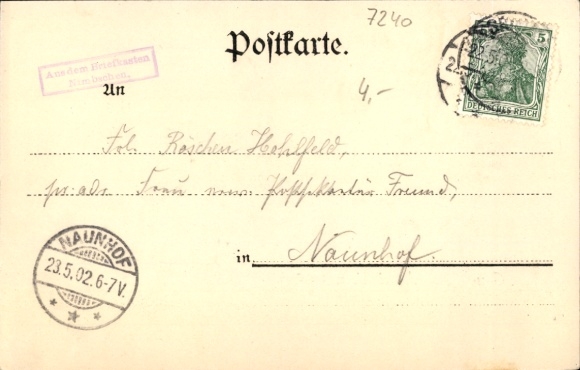 7240
Postkarte.
Aus dem Briefkasten
4,-
An
5
DEUTSCHES REICH
Frl. Röschen Hohlfeld,
pr. adr. Frau Freund,
in Naunhof.
NAUNHOF
23.5.02.6-7V.